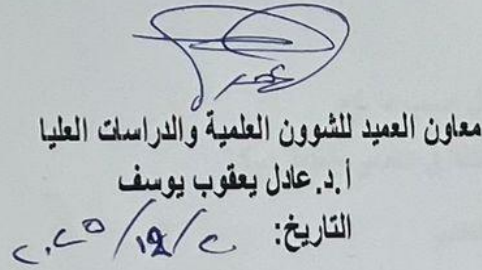 معاون العميد للشوون العلمية والدراسات العليا
أ.د. عادل يعقوب يوسف
التاريخ: